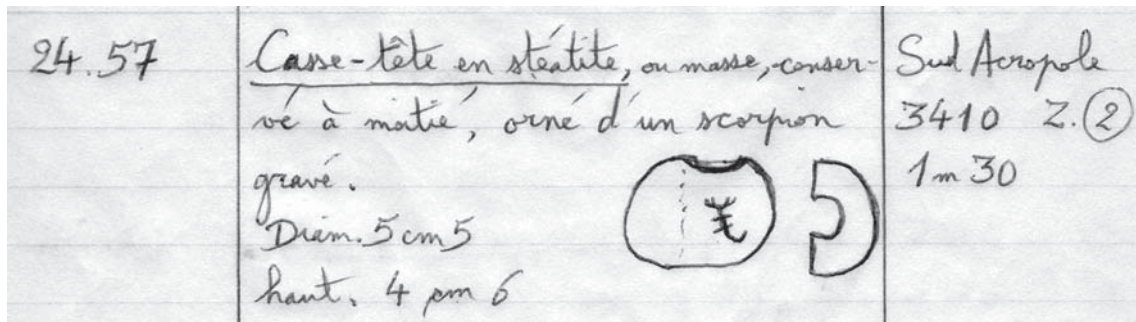 24.57
Casse-tête en stéatite, ou masse, conser-
vé à moitié, orné d'un scorpion
gravé.
Diam. 5 cm 5
haut. 4 cm 6
Sud Acropole
3410 Z. 2
1 m 30